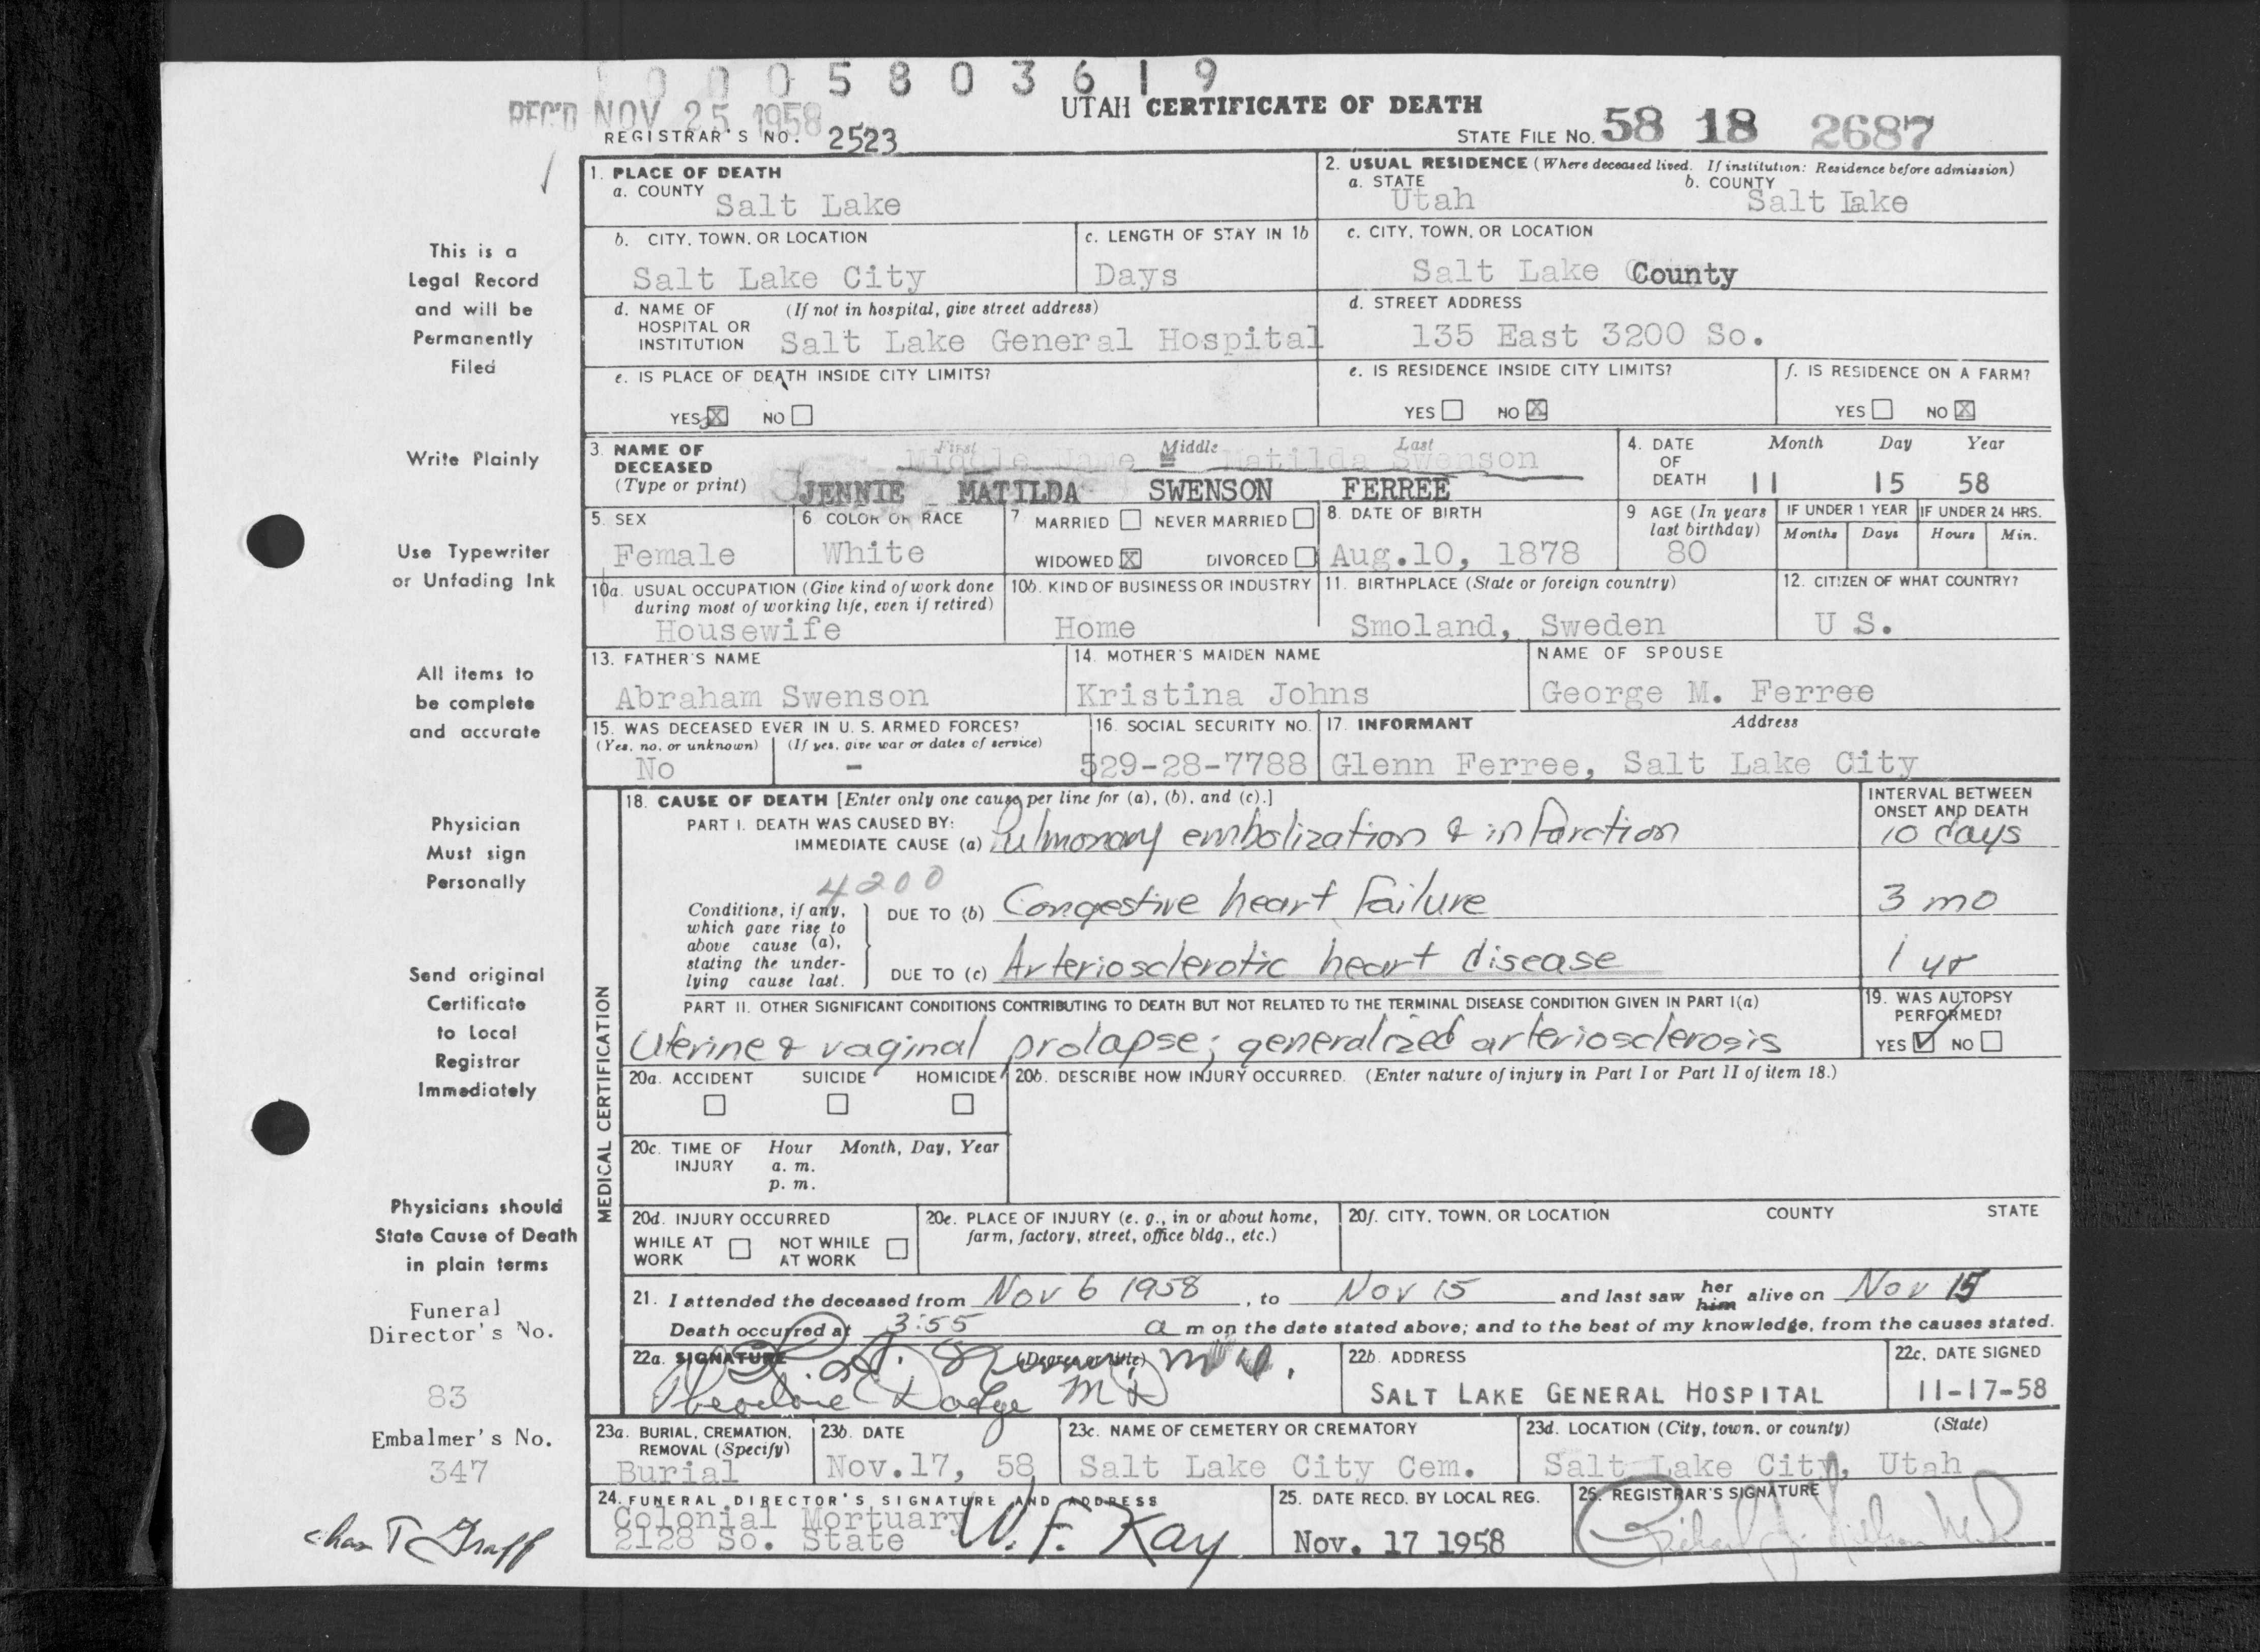 0 0 0 5 8 0 3 6 1 9
REC'D NOV 25 1958
UTAH CERTIFICATE OF DEATH
REGISTRAR'S NO. 2523
STATE FILE NO. 58 18 2687
This is a
Legal Record
and will be
Permanently
Filed
Write Plainly
Use Typewriter
or Unfading Ink
All items to
be complete
and accurate
Physician
Must sign
Personally
Send original
Certificate
to Local
Registrar
Immediately
Physicians should
State Cause of Death
in plain terms
Funeral
Director's No.
83
Embalmer's No.
347
Chas T Graff
1. PLACE OF DEATH
a. COUNTY Salt Lake
2. USUAL RESIDENCE (Where deceased lived. If institution: Residence before admission)
a. STATE Utah b. COUNTY Salt Lake
b. CITY, TOWN, OR LOCATION Salt Lake City
c. LENGTH OF STAY IN 1b Days
c. CITY, TOWN, OR LOCATION Salt Lake County
d. NAME OF HOSPITAL OR INSTITUTION (If not in hospital, give street address) Salt Lake General Hospital
d. STREET ADDRESS 135 East 3200 So.
e. IS PLACE OF DEATH INSIDE CITY LIMITS? YES X NO
e. IS RESIDENCE INSIDE CITY LIMITS? YES NO X
f. IS RESIDENCE ON A FARM? YES NO X
3. NAME OF DECEASED (Type or print) First Middle Last
Middle Name Matilda Swenson
JENNIE MATILDA SWENSON FERREE
4. DATE OF DEATH Month Day Year
11 15 58
5. SEX Female
6. COLOR OR RACE White
7. MARRIED NEVER MARRIED
WIDOWED X DIVORCED
8. DATE OF BIRTH Aug.10, 1878
9 AGE (In years last birthday) 80
IF UNDER 1 YEAR Months Days
IF UNDER 24 HRS. Hours Min.
10a. USUAL OCCUPATION (Give kind of work done during most of working life, even if retired) Housewife
10b. KIND OF BUSINESS OR INDUSTRY Home
11. BIRTHPLACE (State or foreign country) Smoland, Sweden
12. CITIZEN OF WHAT COUNTRY? U S.
13. FATHER'S NAME Abraham Swenson
14. MOTHER'S MAIDEN NAME Kristina Johns
NAME OF SPOUSE George M. Ferree
15. WAS DECEASED EVER IN U. S. ARMED FORCES?
(Yes, no, or unknown) No (If yes, give war or dates of service) -
16. SOCIAL SECURITY NO. 529-28-7788
17. INFORMANT Address
Glenn Ferree, Salt Lake City
MEDICAL CERTIFICATION
18. CAUSE OF DEATH [Enter only one cause per line for (a), (b), and (c).]
INTERVAL BETWEEN ONSET AND DEATH
PART I. DEATH WAS CAUSED BY:
IMMEDIATE CAUSE (a) Pulmonary embolization & infarction 10 days
4200
Conditions, if any, which gave rise to above cause (a), stating the underlying cause last.
DUE TO (b) Congestive heart failure 3 mo
DUE TO (c) Arteriosclerotic heart disease 1 yr
PART II. OTHER SIGNIFICANT CONDITIONS CONTRIBUTING TO DEATH BUT NOT RELATED TO THE TERMINAL DISEASE CONDITION GIVEN IN PART I(a)
Uterine & vaginal prolapse; generalized arteriosclerosis
19. WAS AUTOPSY PERFORMED?
YES ✓ NO
20a. ACCIDENT SUICIDE HOMICIDE
20b. DESCRIBE HOW INJURY OCCURRED. (Enter nature of injury in Part I or Part II of item 18.)
20c. TIME OF INJURY Hour Month, Day, Year
a. m.
p. m.
20d. INJURY OCCURRED
WHILE AT WORK NOT WHILE AT WORK
20e. PLACE OF INJURY (e. g., in or about home, farm, factory, street, office bldg., etc.)
20f. CITY, TOWN, OR LOCATION COUNTY STATE
21. I attended the deceased from Nov 6 1958, to Nov 15 and last saw her him alive on Nov 15
Death occurred at 3:55 a m on the date stated above; and to the best of my knowledge, from the causes stated.
22a. SIGNATURE (Degree or title) M.D.
Theodore Dodge MD
22b. ADDRESS
SALT LAKE GENERAL HOSPITAL
22c. DATE SIGNED
11-17-58
23a. BURIAL, CREMATION, REMOVAL (Specify) Burial
23b. DATE Nov.17, 58
23c. NAME OF CEMETERY OR CREMATORY Salt Lake City Cem.
23d. LOCATION (City, town, or county) (State)
Salt Lake City, Utah
24. FUNERAL DIRECTOR'S SIGNATURE AND ADDRESS
Colonial Mortuary
2128 So. State W. F. Kay
25. DATE RECD. BY LOCAL REG.
Nov. 17 1958
26. REGISTRAR'S SIGNATURE